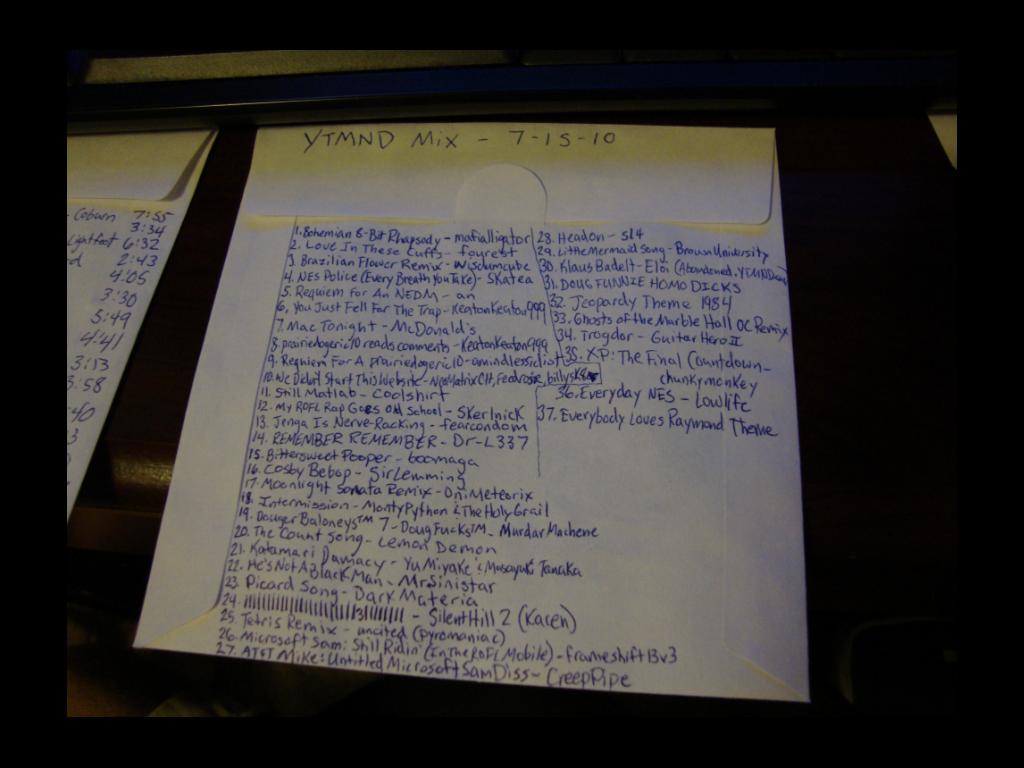 YTMND Mix - 7-15-10
1. Bohemian 8-Bit Rhapsody - mafialligator
2. Love In These Cuffs - fourest
3. Brazilian Flower Remix - Wisdumcube
4. NES Police (Every Breath You Take) - Skatea
5. Requiem For An NEDM - an
6. You Just Fell For The Trap - KeatonKeaton999
7. Mac Tonight - McDonald's
8. prairiedogeric10 reads comments - KeatonKeaton999
9. Requiem For A prairiedogeric10 - amindlessidiot
10. We Didn't Start This Website - NeoMatrixCJH, Fedrosie, billysk8
11. Still Matlab - Coolshirt
12. My ROFL Rap Goes Old School - SkerlnicK
13. Jenga Is Nerve-Racking - fearcondom
14. REMEMBER REMEMBER - Dr-L337
15. Bittersweet Pooper - boomaga
16. Cosby Bebop - SirLemming
17. Moonlight Sonata Remix - OniMeteorix
18. Intermission - MontyPython & The Holy Grail
19. Douger Baloneys™ 7 - DougFucks™ - MurdarMachene
20. The Count Song - Lemon Demon
21. Katamari Damacy - Yu Miyake & Masayuki Tanaka
22. He's Not A Black Man - MrSinistar
23. Picard Song - Dark Materia
24. - Silent Hill 2 (Karen)
25. Tetris Remix - uncited (pyromaniac)
26. Microsoft Sam: Still Ridin' (In The ROFLMobile) - frameshift13v3
27. AT&T Mike: Untitled Microsoft Sam Diss - CreepPipe
28. Headon - sl4
29. Little Mermaid Song - Brown University
30. Klaus Badelt - Eloi (Abandoned.YTMND.com)
31. DOUG FUNNIE HOMO DICKS
32. Jeopardy Theme 1984
33. Ghosts of the Marble Hall OC Remix
34. Trogdor - Guitar Hero II
35. XP: The Final Countdown -
chunkymonkey
36. Everyday NES - Lowlife
37. Everybody Loves Raymond Theme
Coburn 7:55
3:34
Lightfoot 6:32
2:43
4:05
3:30
5:49
4:41
3:13
3:58
:40